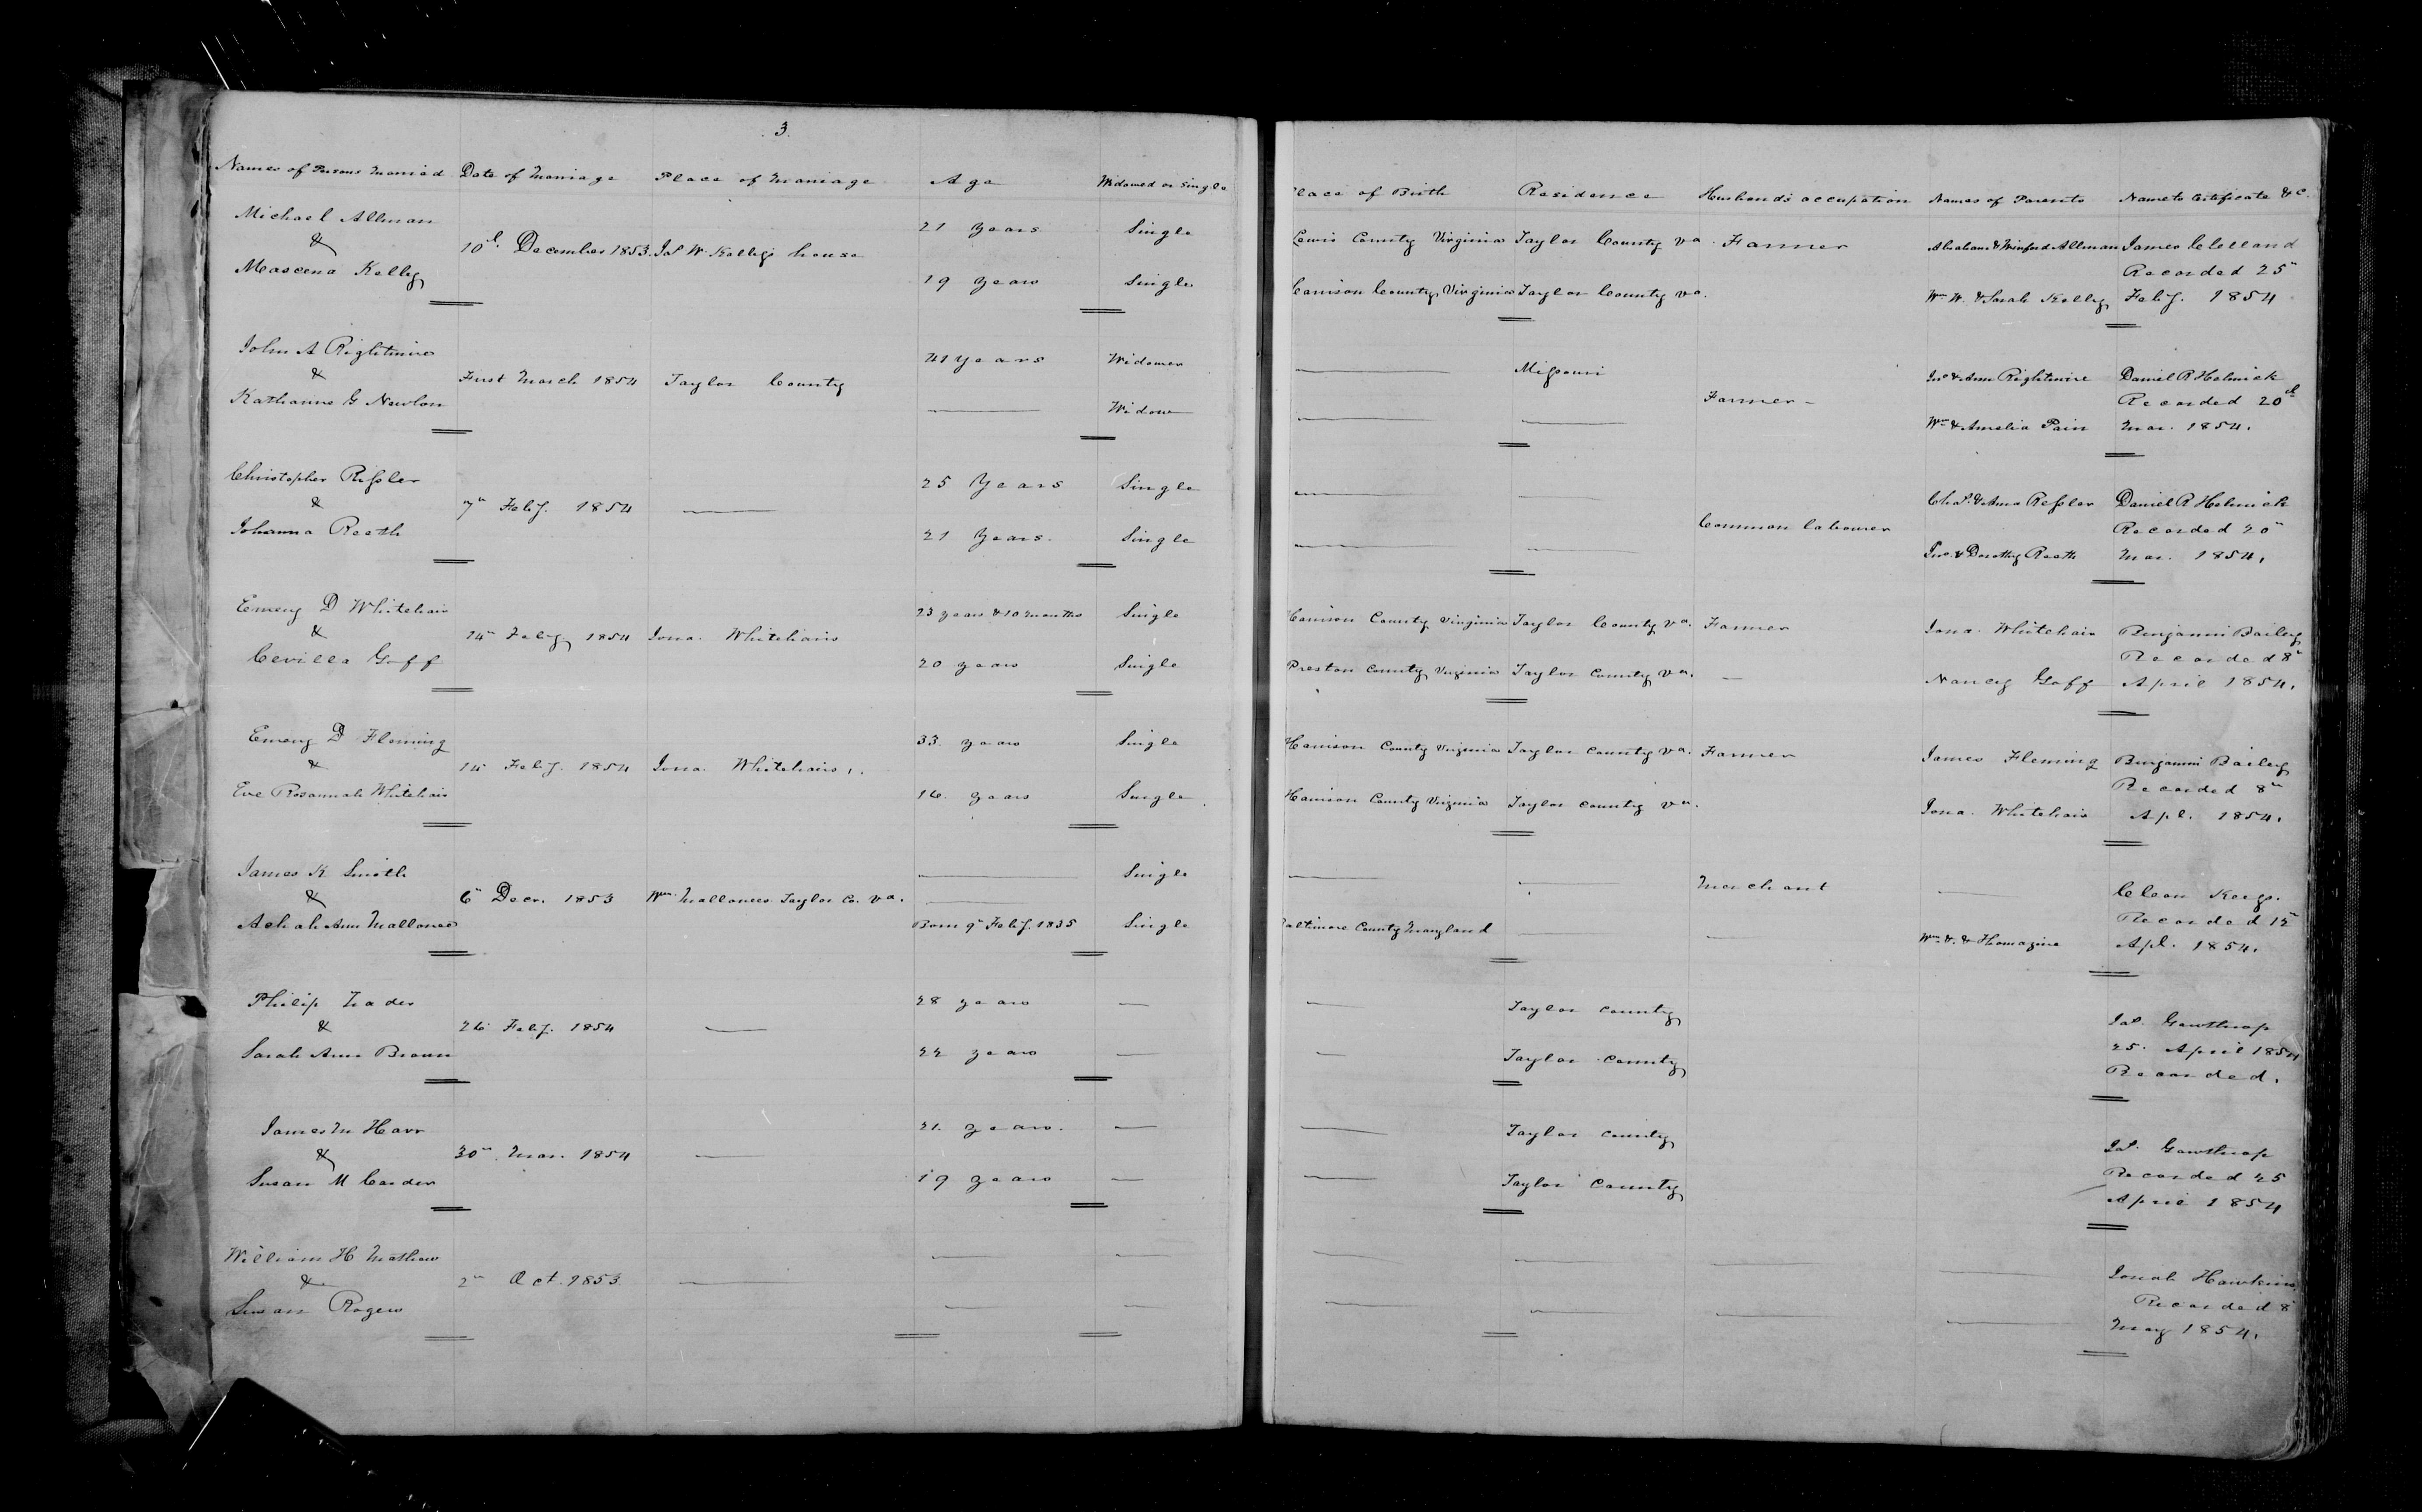 3.
Names of Persons Married Date of Marriage Place of Marriage Age Widowed or Single Place of Birth Residence Husbands occupation Names of Parents Name to Certificate &c.
Michael Allman 21 years Single Lewis County Virginia Taylor County Va. Farmer Abraham & Winford Allman James Clelland
& 10th December 1853 Jas W. Kellys house Recorded 25"
Mascena Kelly 19 years Single Harrison County Virginia Taylor County Va. Wm W. & Sarah Kelly Feby. 1854
John A Rightmire 41 years Widower Missouri Jno & Ann Rightmire Daniel R Helmick
& First March 1854 Taylor County Farmer Recorded 20th
Katharine G Newlon Widow Wm & Amelia Pain Mar. 1854.
Christopher Rissler 25 Years Single Chas. & Anna Ressler Daniel R Helmick
& 7" Feby. 1854 Common labourer Recorded 20"
Johanna Reeth 21 Years. Single Jno. & Dorothy Reeth Mar. 1854.
Emery D Whitehair 23 years & 10 months Single Harrison County Virginia Taylor County Va. Farmer Jona. Whitehair Benjamin Bailey
& 14" Feby 1854 Jona. Whitehairs Recorded 8"
Cevilla Goff 20 years Single Preston County Virginia Taylor County Va. Nancy Goff April 1854.
Emery D Fleming 33 years Single Harrison County Virginia Taylor County Va. Farmer James Fleming Benjamin Bailey
& 14 Feby. 1854 Jona. Whitehairs Recorded 8"
Eve Rosannah Whitehair 16 years Single Harrison County Virginia Taylor County Va. Jona. Whitehair Apl. 1854.
James K Smith Single Merchant
& 6" Decr. 1853 Wm. Mallonees Taylor Co. Va. Recorded 12"
Achah Ann Mallonee Born 9" Feby. 1835 Single Baltimore County Maryland Wm. & Thomazine Apl. 1854.
Philip Nader 28 years Taylor County Jas. Gawthrop
& 26 Feby. 1854 25. April 1854
Sarah Ann Brown 22 years Taylor County Recorded.
James M Harr 21 years. Taylor County Jas. Gawthrop
& 30" Mar. 1854 Recorded 25
Susan M Carder 19 years Taylor County April 1854
William H Mathew Jonah Hawkins
& 2" Oct. 1853 Recorded 8
Susan Rogers May 1854.